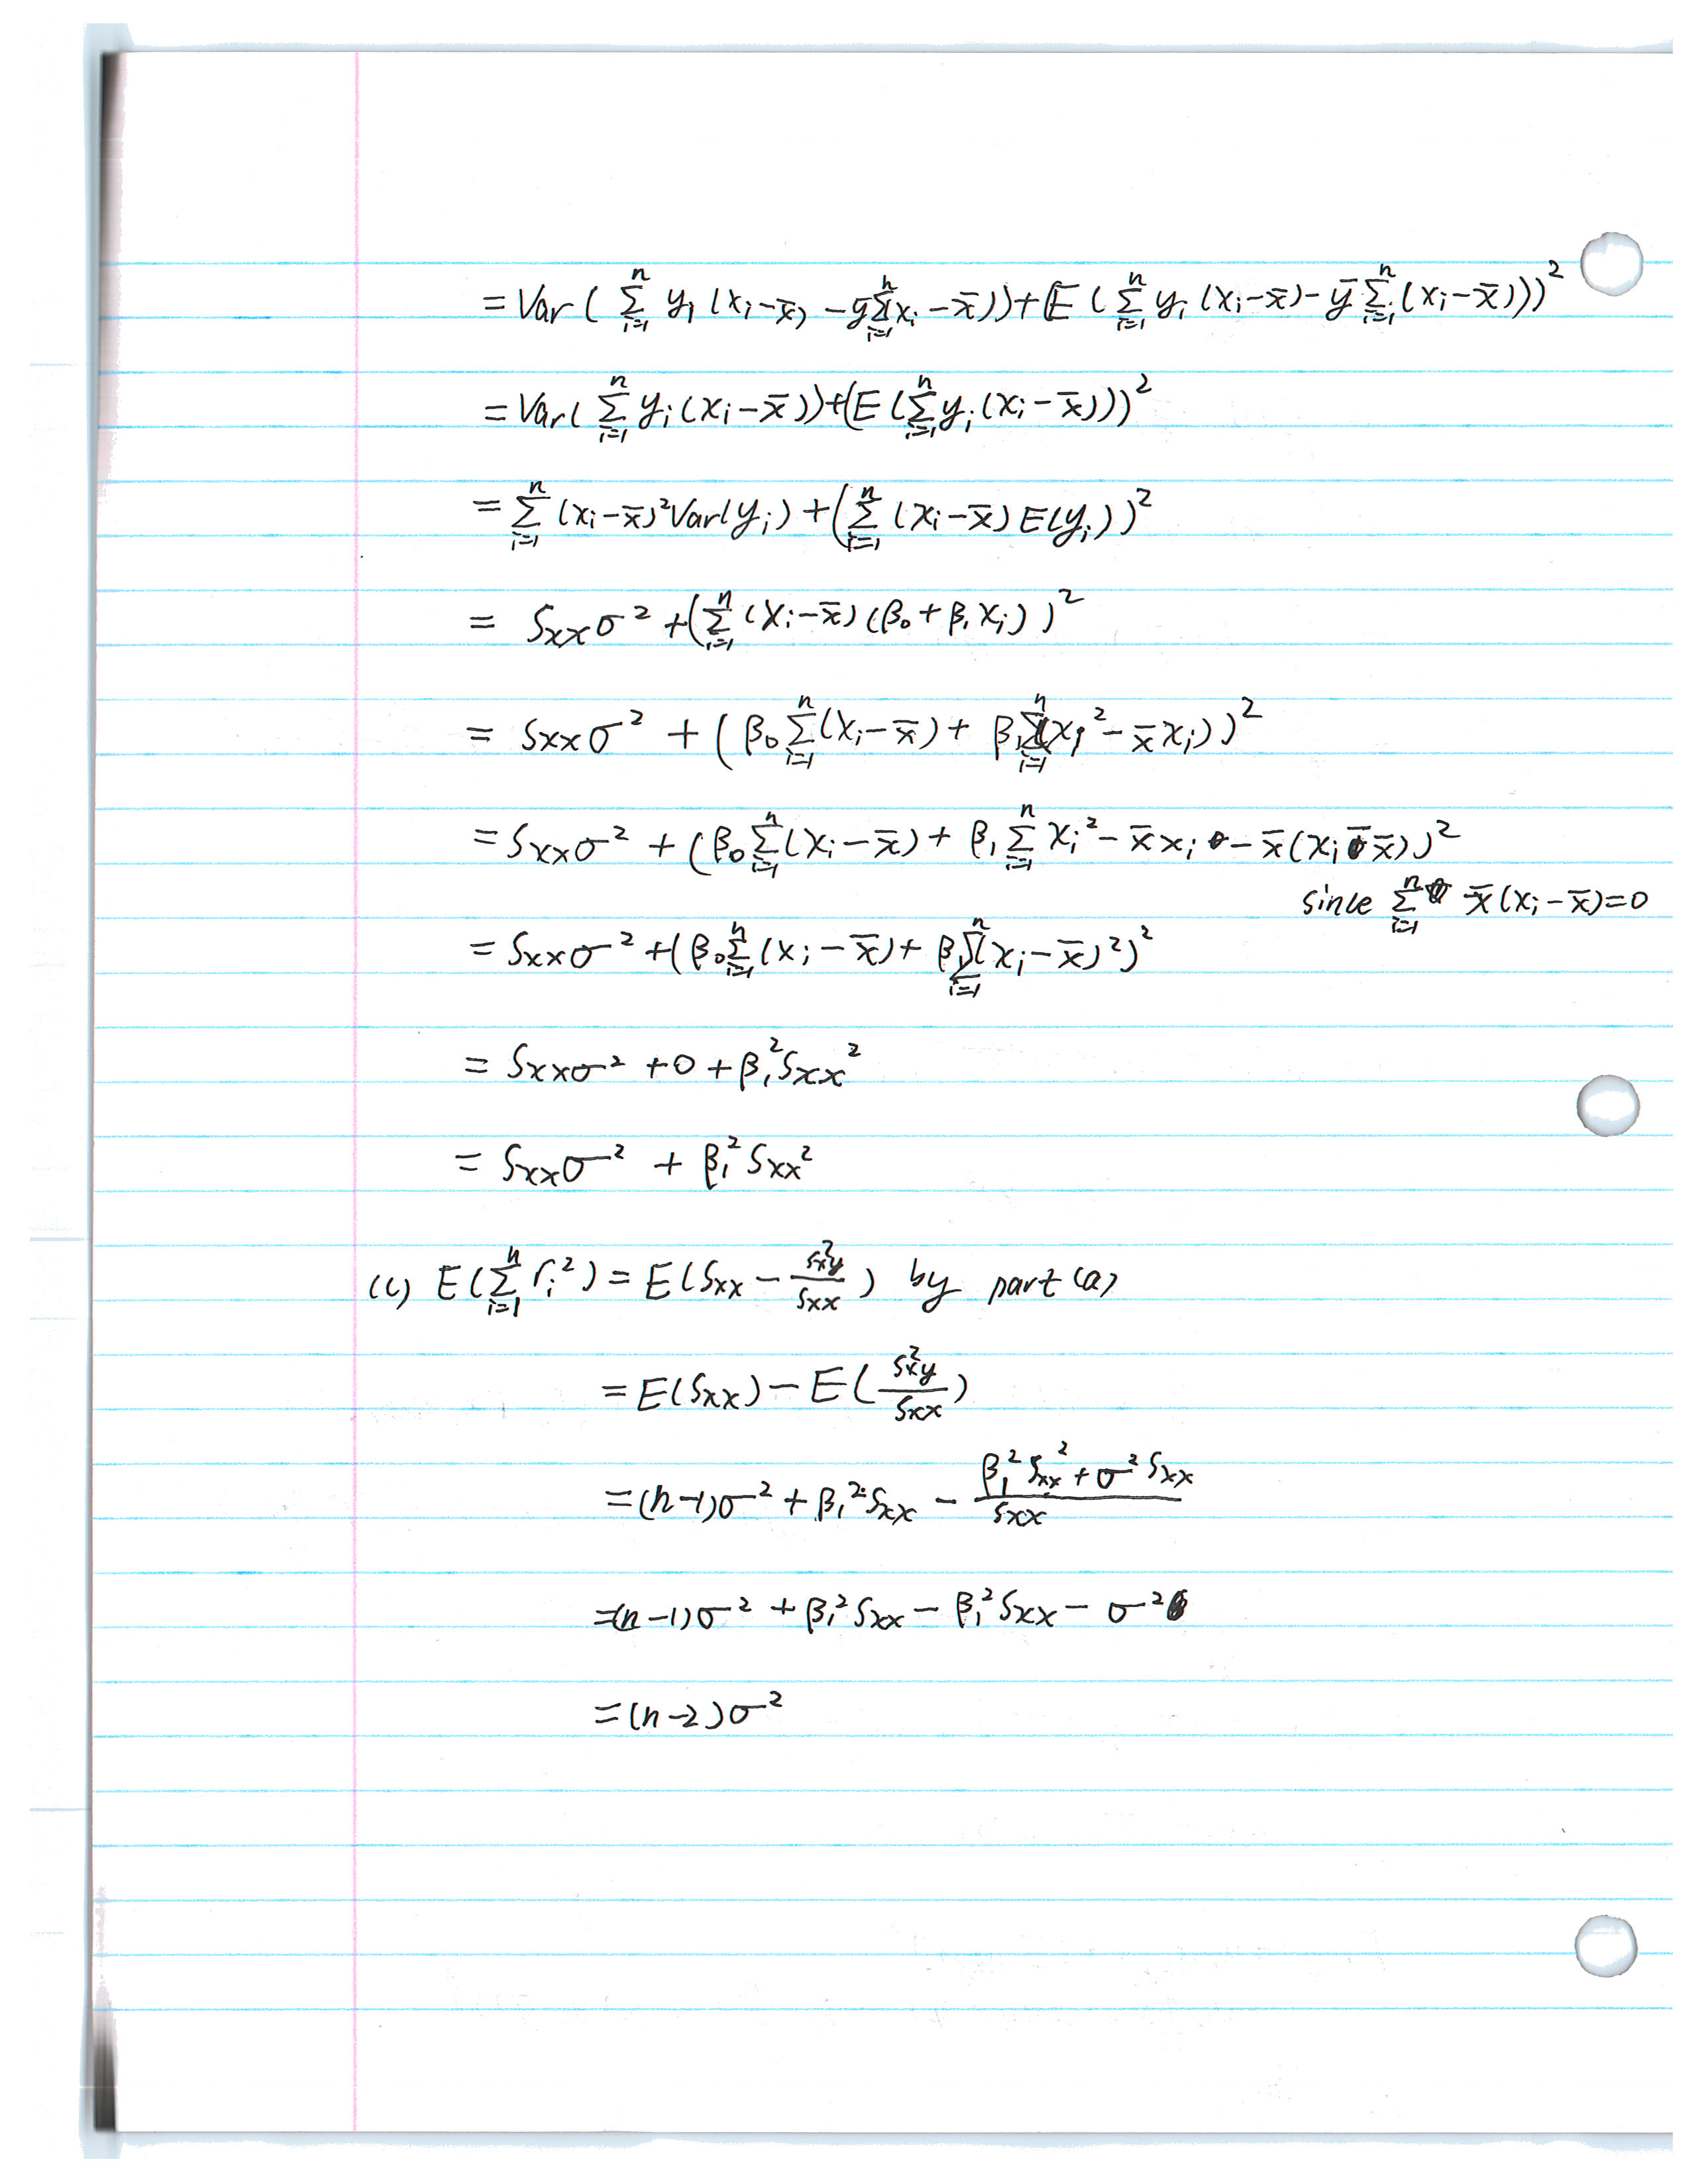 = Var ( Σ_{i=1}^{n} y_i (x_i - x̄) - ȳ Σ_{i=1}^{n} x_i - x̄)) + (E ( Σ_{i=1}^{n} y_i (x_i - x̄) - ȳ Σ_{i=1}^{n} (x_i - x̄)))²
= Var ( Σ_{i=1}^{n} y_i (x_i - x̄)) + (E ( Σ_{i=1}^{n} y_i (x_i - x̄)))²
= Σ_{i=1}^{n} (x_i - x̄)² Var(y_i) + ( Σ_{i=1}^{n} (x_i - x̄) E(y_i))²
= Sxx σ² + ( Σ_{i=1}^{n} (x_i - x̄) (β₀ + β₁ x_i) )²
= Sxx σ² + ( β₀ Σ_{i=1}^{n} (x_i - x̄) + β₁ Σ_{i=1}^{n} (x_i² - x̄ x_i) )²
= Sxx σ² + ( β₀ Σ_{i=1}^{n} (x_i - x̄) + β₁ Σ_{i=1}^{n} x_i² - x̄ x_i - x̄ (x_i - x̄) )²
since Σ_{i=1}^{n} x̄ (x_i - x̄) = 0
= Sxx σ² + ( β₀ Σ_{i=1}^{n} (x_i - x̄) + β₁ Σ_{i=1}^{n} (x_i - x̄)² )²
= Sxx σ² + 0 + β₁² Sxx²
= Sxx σ² + β₁² Sxx²
(c) E ( Σ_{i=1}^{n} r_i² ) = E ( Sxx - S²xy / Sxx ) by part (a)
= E(Sxx) - E ( S²xy / Sxx )
= (n-1)σ² + β₁² Sxx - (β₁² Sxx² + σ² Sxx) / Sxx
= (n-1)σ² + β₁² Sxx - β₁² Sxx - σ²
= (n-2)σ²